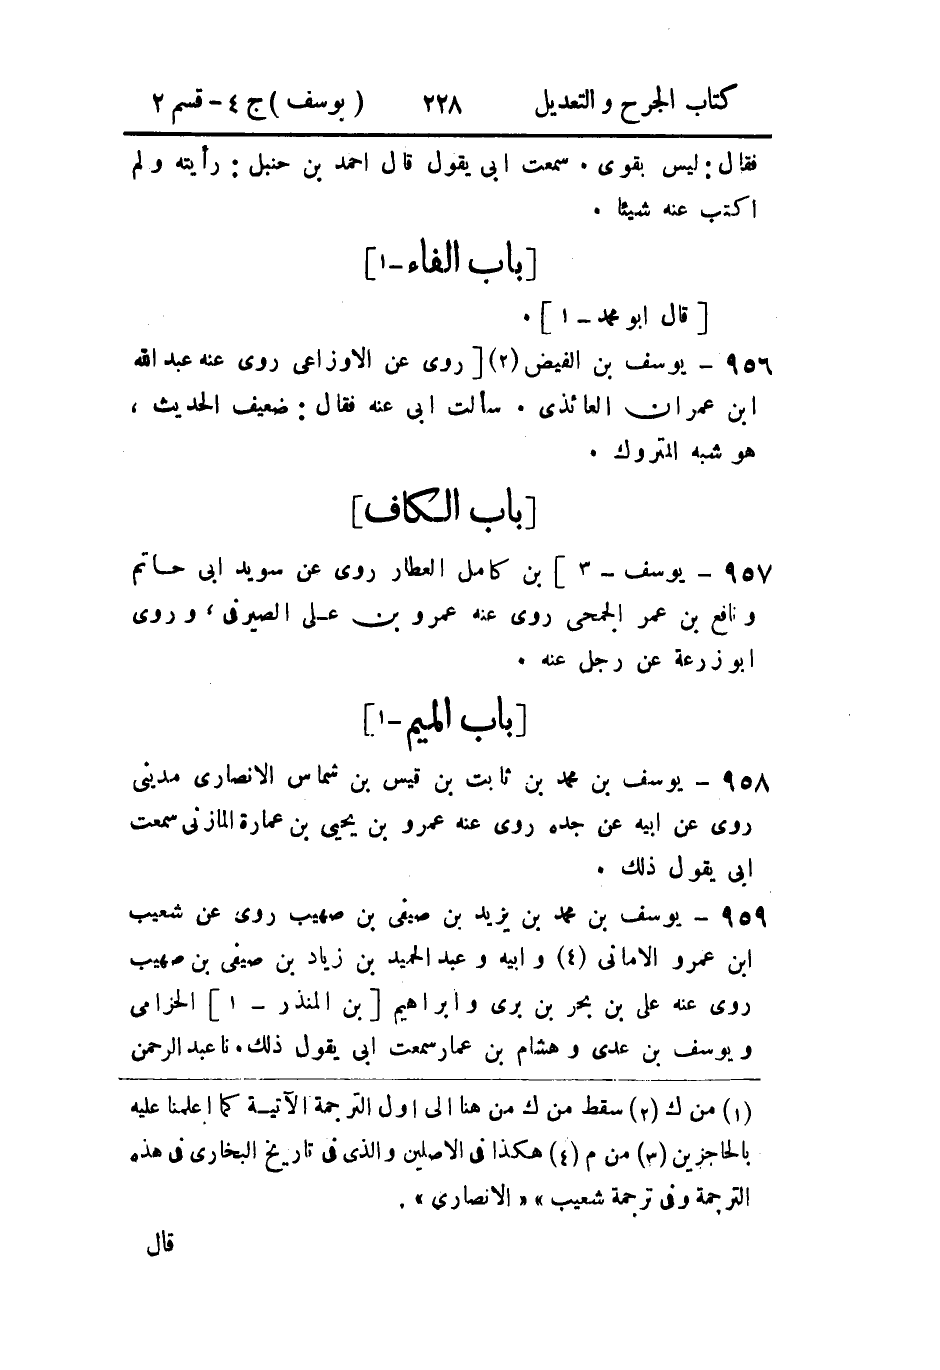 كتاب الجرح و التعديل ٢٢٨ ( يوسف ) ج ٤ - قسم ٢
فقال : ليس بقوى . سمعت ابى يقول قال احمد بن حنبل : رأيته و لم
اكتب عنه شيئا .
[ باب الفاء - ١ ]
[ قال ابو محمد - ١ ] .
٩٥٦ - يوسف بن الفيض (٢) [ روى عن الاوزاعى روى عنه عبد الله
ابن عمران العائذى . سألت ابى عنه فقال : ضعيف الحديث ،
هو شبه المتروك .
[ باب الكاف ]
٩٥٧ - يوسف - ٣ ] بن كامل العطار روى عن سويد ابى حاتم
و نافع بن عمر الجمحى روى عنه عمرو بن على الصيرفى ، و روى
ابو زرعة عن رجل عنه .
[ باب الميم - ١ ]
٩٥٨ - يوسف بن محمد بن ثابت بن قيس بن شماس الانصارى مدينى
روى عن ابيه عن جده روى عنه عمرو بن يحيى بن عمارة المازنى سمعت
ابى يقول ذلك .
٩٥٩ - يوسف بن محمد بن يزيد بن صيفى بن صهيب روى عن شعيب
ابن عمرو الامانى (٤) و ابيه و عبد الحميد بن زياد بن صيفى بن صهيب
روى عنه على بن بحر بن برى و ابراهيم [ بن المنذر - ١ ] الحزامى
و يوسف بن عدى و هشام بن عمار سمعت ابى يقول ذلك . نا عبد الرحمن
(١) من ك (٢) سقط من ك من هنا الى اول الترجمة الآتية كما اعلمنا عليه
بالحاجزين (٣) من م (٤) هكذا فى الاصلين و الذى فى تاريخ البخارى فى هذه
الترجمة و فى ترجمة شعيب » « الانصارى » .
قال